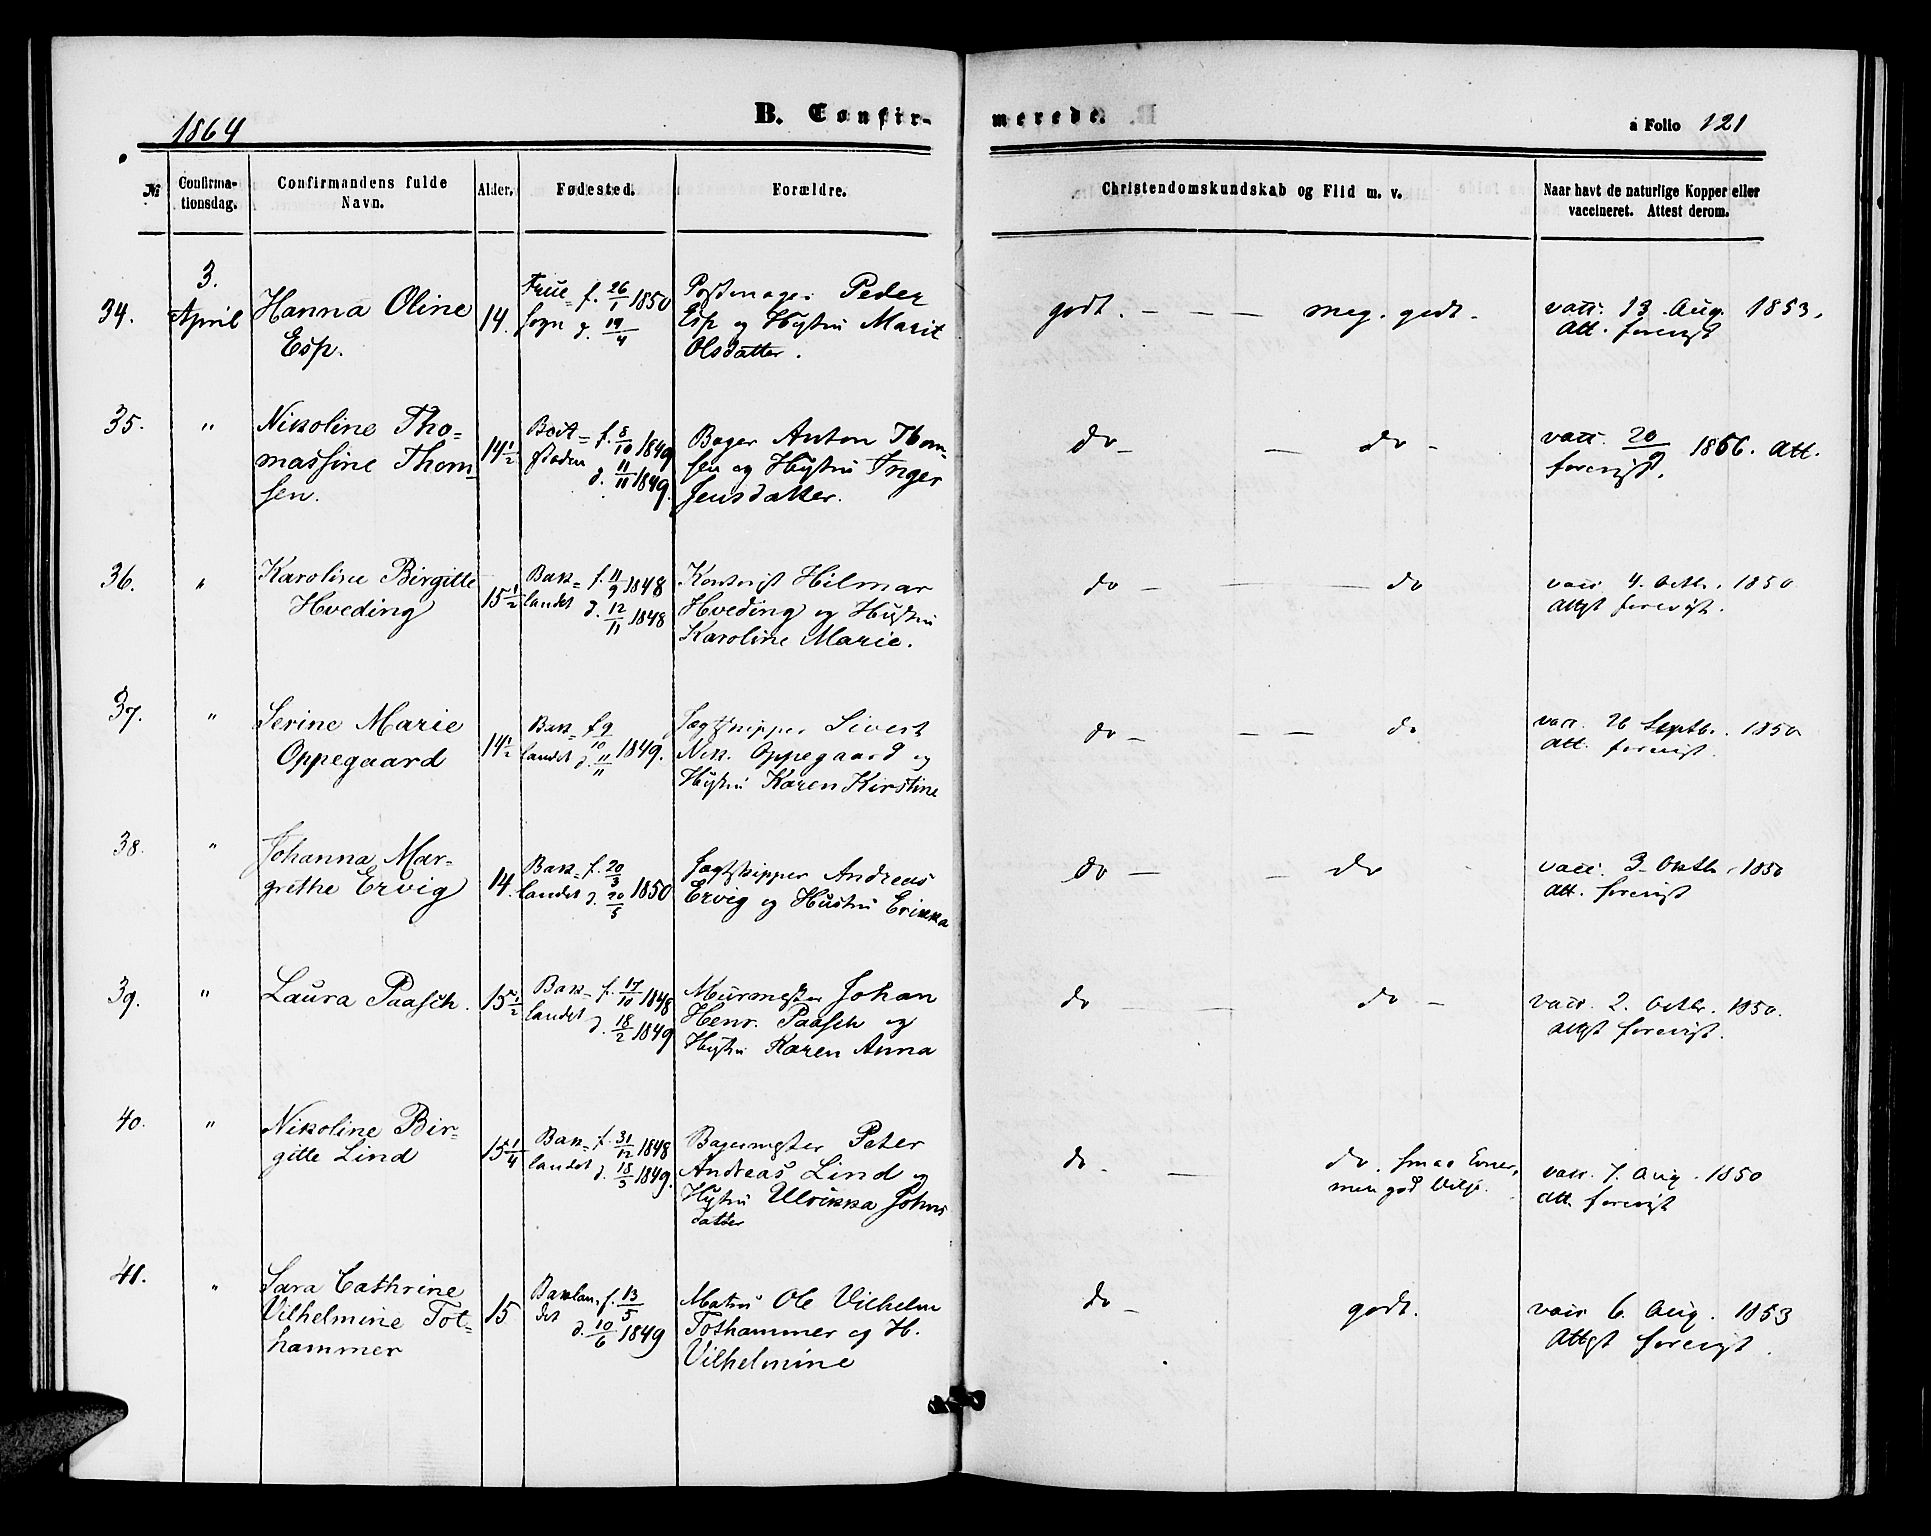 1864
B. Confir-
merede.
a Folio 121
№
Confirma-
tionsdag.
Confirmandens fulde
Navn.
Alder.
Fødested.
Forældre.
Christendomskundskab og Flid m. v.
Naar havt de naturlige Kopper eller
vaccineret. Attest derom.
34.
3.
April
Hanna Oline
Esp.
14.
Frue- f. 26/1 1850
sogn d. 19/4
Peder
Esp og Hustru Marit
Olsdatter.
godt. — — — meg. godt.
vacc. 13. Aug. 1853.
Att. forevist
35.
"
Nikoline Tho-
massine Thom-
sen.
14 1/2
f. 8/10 1849
d. 11/11 1849.
Bager Anton Thom-
sen og Hustru Inger
Jensdatter.
do — — do —
vacc. 20/9 1856. Att.
forevist.
36.
"
Karoline Birgitte
Hveding
15 1/2
Bak- f. 11/9 1848
landet d. 12/11 1848
Kontorist Hilmar
Hveding og Hustru
Karoline Marie.
do — — — do
vacc. 4. Octbr. 1850
Attest forevist.
37.
"
Serine Marie
Oppegaard
14 1/2
Bak- f. 9/10
landet d. 11/11 1849.
Jægtskipper Sivert
Nik. Oppegaard og
Hustru Karen Kirstine
do — — — do
vacc. 26 Septbr. 1850
Att. forevist.
38.
"
Johanna Mar-
grethe Ervig
14.
Bak- f. 20/3
landet d. 20/5 1850
Jægtskipper Andreas
Ervig og Hustru Erikka
do — — do
vacc. 3. Oktbr. 1850
Att. forevist
39.
"
Laura Paasch.
15 1/2
Bak- f. 17/10 1848
landet d. 18/2 1849
Murmester Johan
Henr. Paasch og
Hustru Karen Anna
do — — do —
vacc. 2. Octbr. 1850.
Attest forevist.
40.
"
Nikoline Bir-
gitte Lind
15 1/4
Bak- f. 31/12 1848
landet d. 18/3 1849.
Bagermester Peter
Andreas Lind og
Hustru Ulrikka Johns
datter
do. — do. smaa Evner,
men god Vilje.
vacc. 7. Aug. 1850
Att. forevist
41.
"
Sara Cathrine
Vilhelmine Tot-
hammer
15
Baklan- f. 13/5
det d. 10/6 1849
Matros Ole Vilhelm
Tothammer og H.
Vilhelmine
do — godt.
vacc. 6. Aug. 1853
Attest forevist.